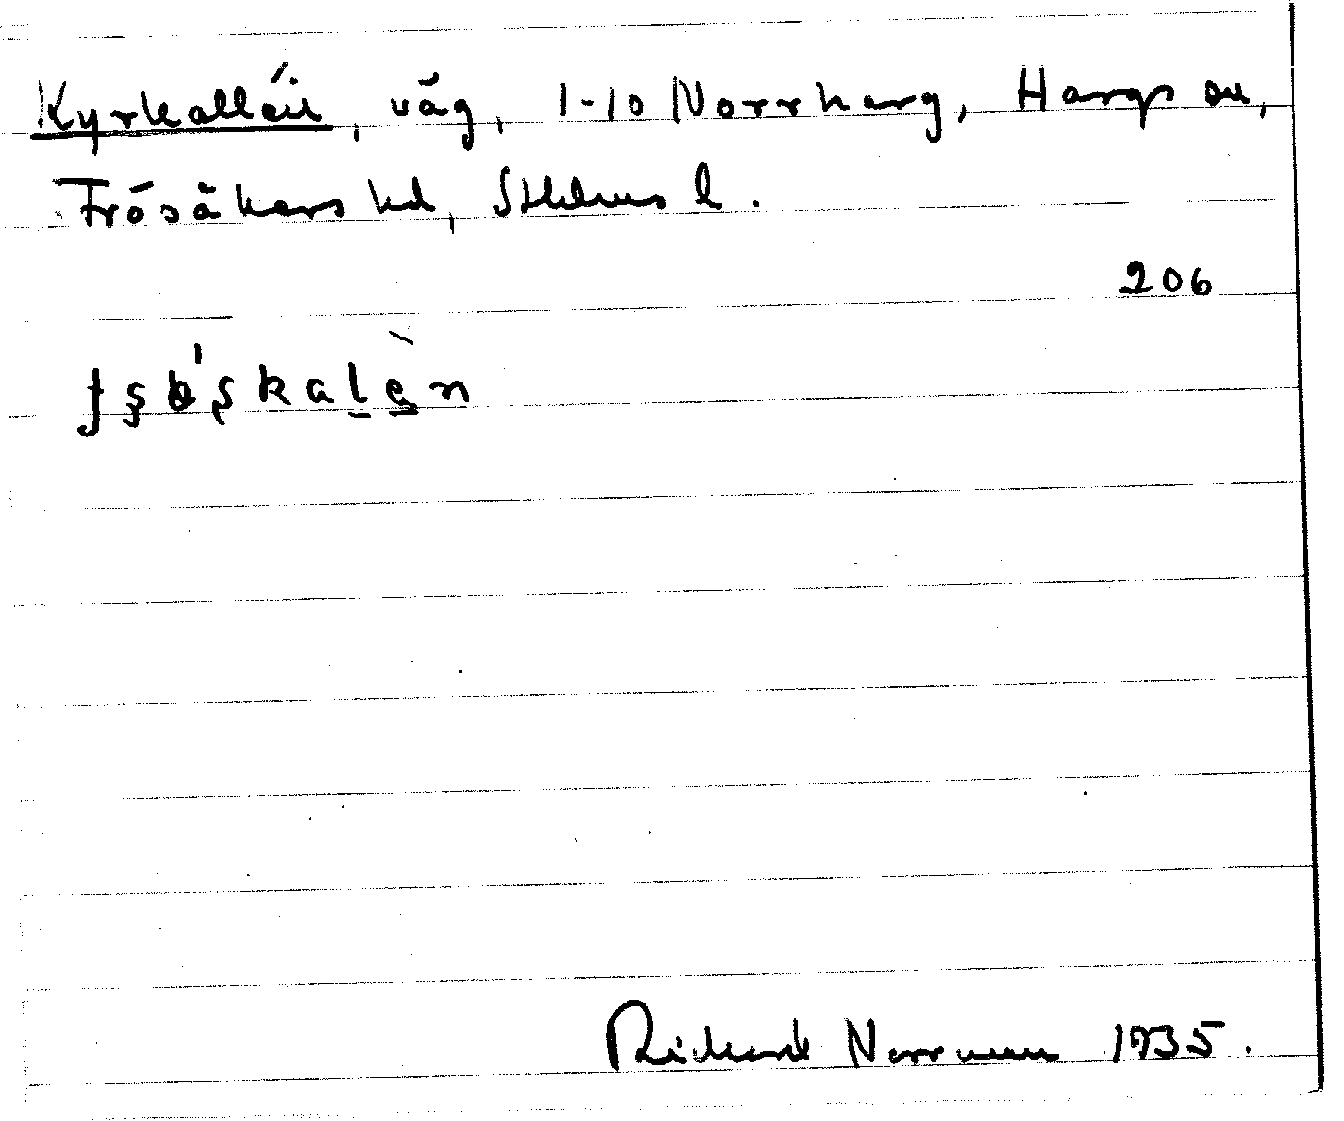 Kyrkallén, väg, 1-10 Norrharg, Hargs sn,
Frösåkers hd, Sthlms l.
206
Richard Norrman 1935.